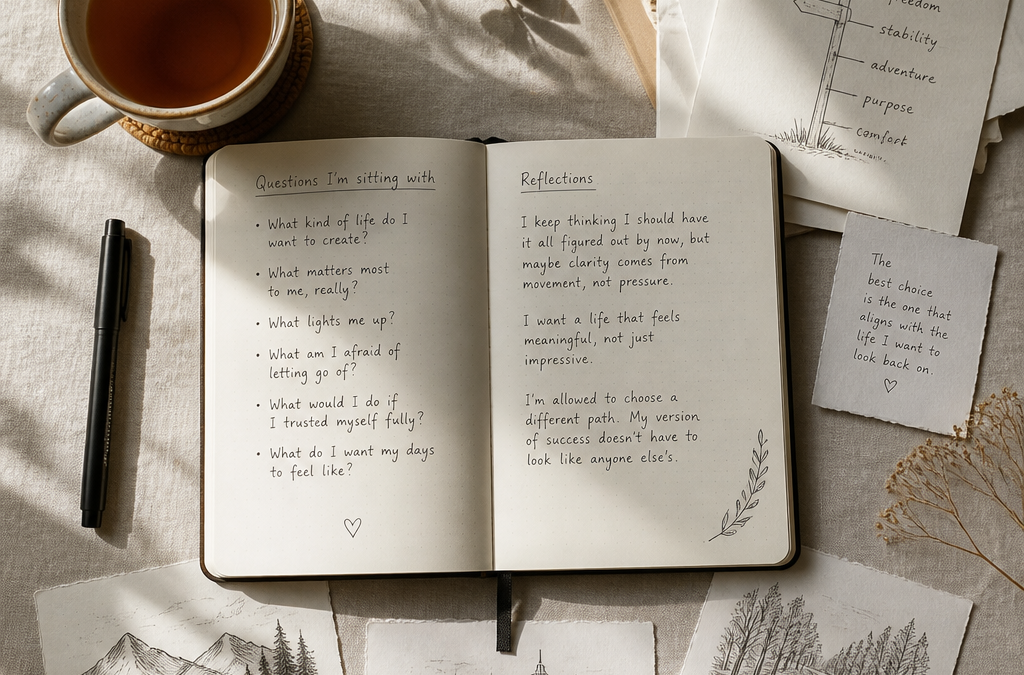 Questions I'm sitting with
• What kind of life do I
want to create?
• What matters most
to me, really?
• What lights me up?
• What am I afraid of
letting go of?
• What would I do if
I trusted myself fully?
• What do I want my days
to feel like?
♡
Reflections
I keep thinking I should have
it all figured out by now, but
maybe clarity comes from
movement, not pressure.
I want a life that feels
meaningful, not just
impressive.
I'm allowed to choose a
different path. My version
of success doesn't have to
look like anyone else's.
stability
adventure
purpose
comfort
The
best choice
is the one that
aligns with the
life I want to
look back on.
♡